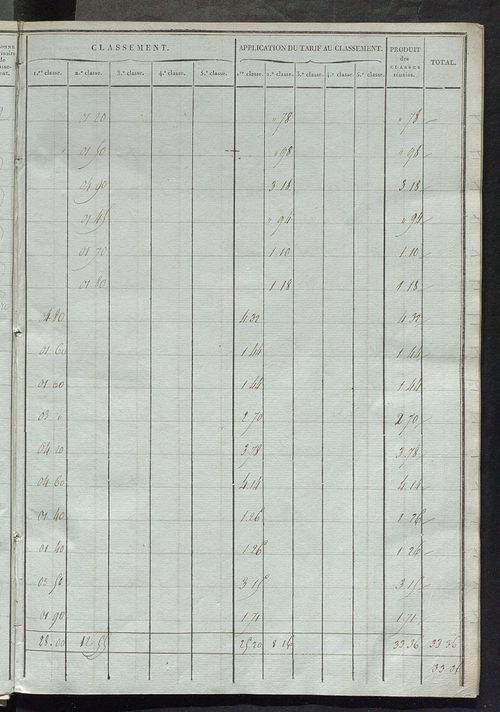 CLASSEMENT. APPLICATION DU TARIF AU CLASSEMENT. PRODUIT des CLASSES réunies. TOTAL.
1.re classe. 2.e classe. 3.e classe. 4.e classe. 5.e classe. 1.re classe. 2.e classe. 3.e classe. 4.e classe. 5.e classe.
01 20 " 78 " 78
01 50 " 98 " 98
04 90 3 18 3 18
01 45 " 94 " 94
01 70 1 10 1 10
01 80 1 18 1 18
4 80 4 32 4 32
01 60 1 44 1 44
01 60 1 44 1 44
03 2 70 2 70
04 20 3 78 3 78
04 60 4 14 4 14
01 40 1 26 1 26
01 40 1 26 1 26
03 50 3 15 3 15
01 90 1 71 1 71
28 00 12 55 25 20 8 16 33 36 33 36
33 36